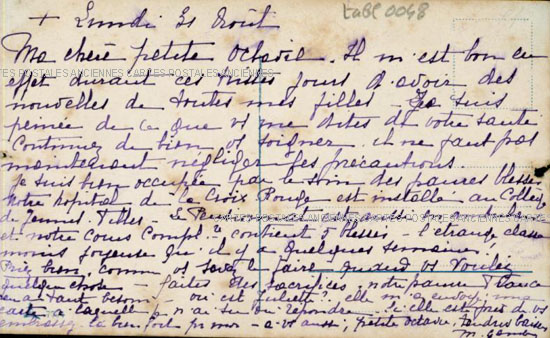 + Lundi 31 Août
tabl 0048
Ma chère petite Octavie. Il m'est bon en
effet durant ces tristes jours d'avoir des
CARTES POSTALES ANCIENNES CARTES POSTALES ANCIENNES
nouvelles de toutes mes filles - Je suis
peinée de ce que vs me dites de votre santé
Continuez de bien vs soigner. il ne faut pas
maintenant négliger les précautions.
Je suis bien occupée par le soin des pauvres blessés
Notre hôpital de la Croix Rouge est installé au Collège
de Jeunes Filles - Le
et notre Cours Compl.re contient blessés. l'étrange classe
moins joyeuse qu'il y a quelques semaines!
Priez bien, comme vs savez le faire quand vs voulez
quelque chose - faites des sacrifices, notre pauvre France
en a tant besoin - où est Juliette? elle m'a envoyé une
carte à laquelle je n'ai su où répondre. Si elle est près de vs
embrassez la bien fort pr moi - à vs aussi, petite Octavie, tendres baisers